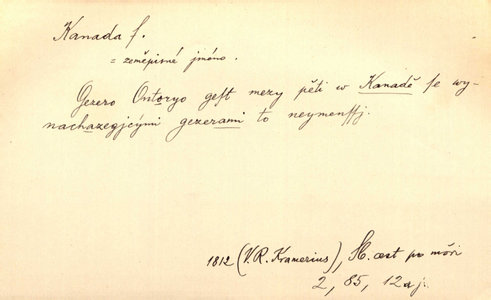 Kanada f.
= zeměpisné jméno.
Gezero Ontoryo gest mezy pěti w Kanadě se wy-
nachazegjcými gezerami to neymenssj.
1812 (V.R. Kramerius), H. cest po môři
2, 85, 12 aj.